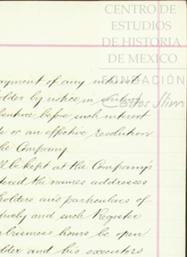 CENTRO DE
ESTUDIOS
DE HISTORIA
DE MEXICO
FUNDACIÓN
Carlos Slim
ayment of any
older by notice in
benture before such interest
or an effective resolution
the Company
ll be kept at the Company's
tered the names addresses
holders and particulars of
tively and such Register
business hours be open
older and his executors